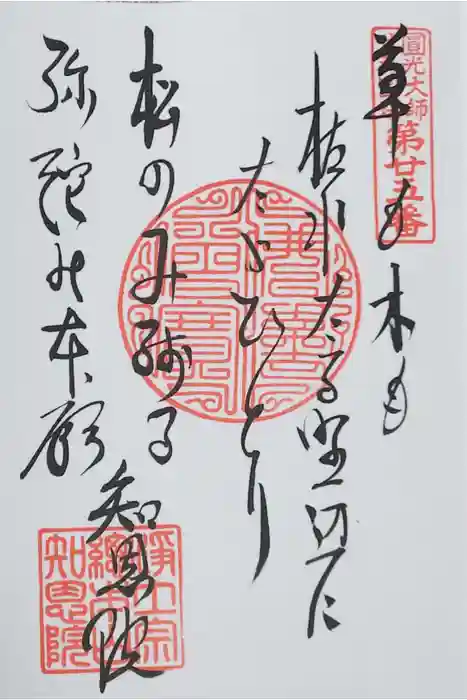 圓光大師
第廿五番
草も木も
枯れたる野辺に
たゞひとり
松のみ残る
弥陀の本願
知恩院
淨土宗
總本山
知恩院